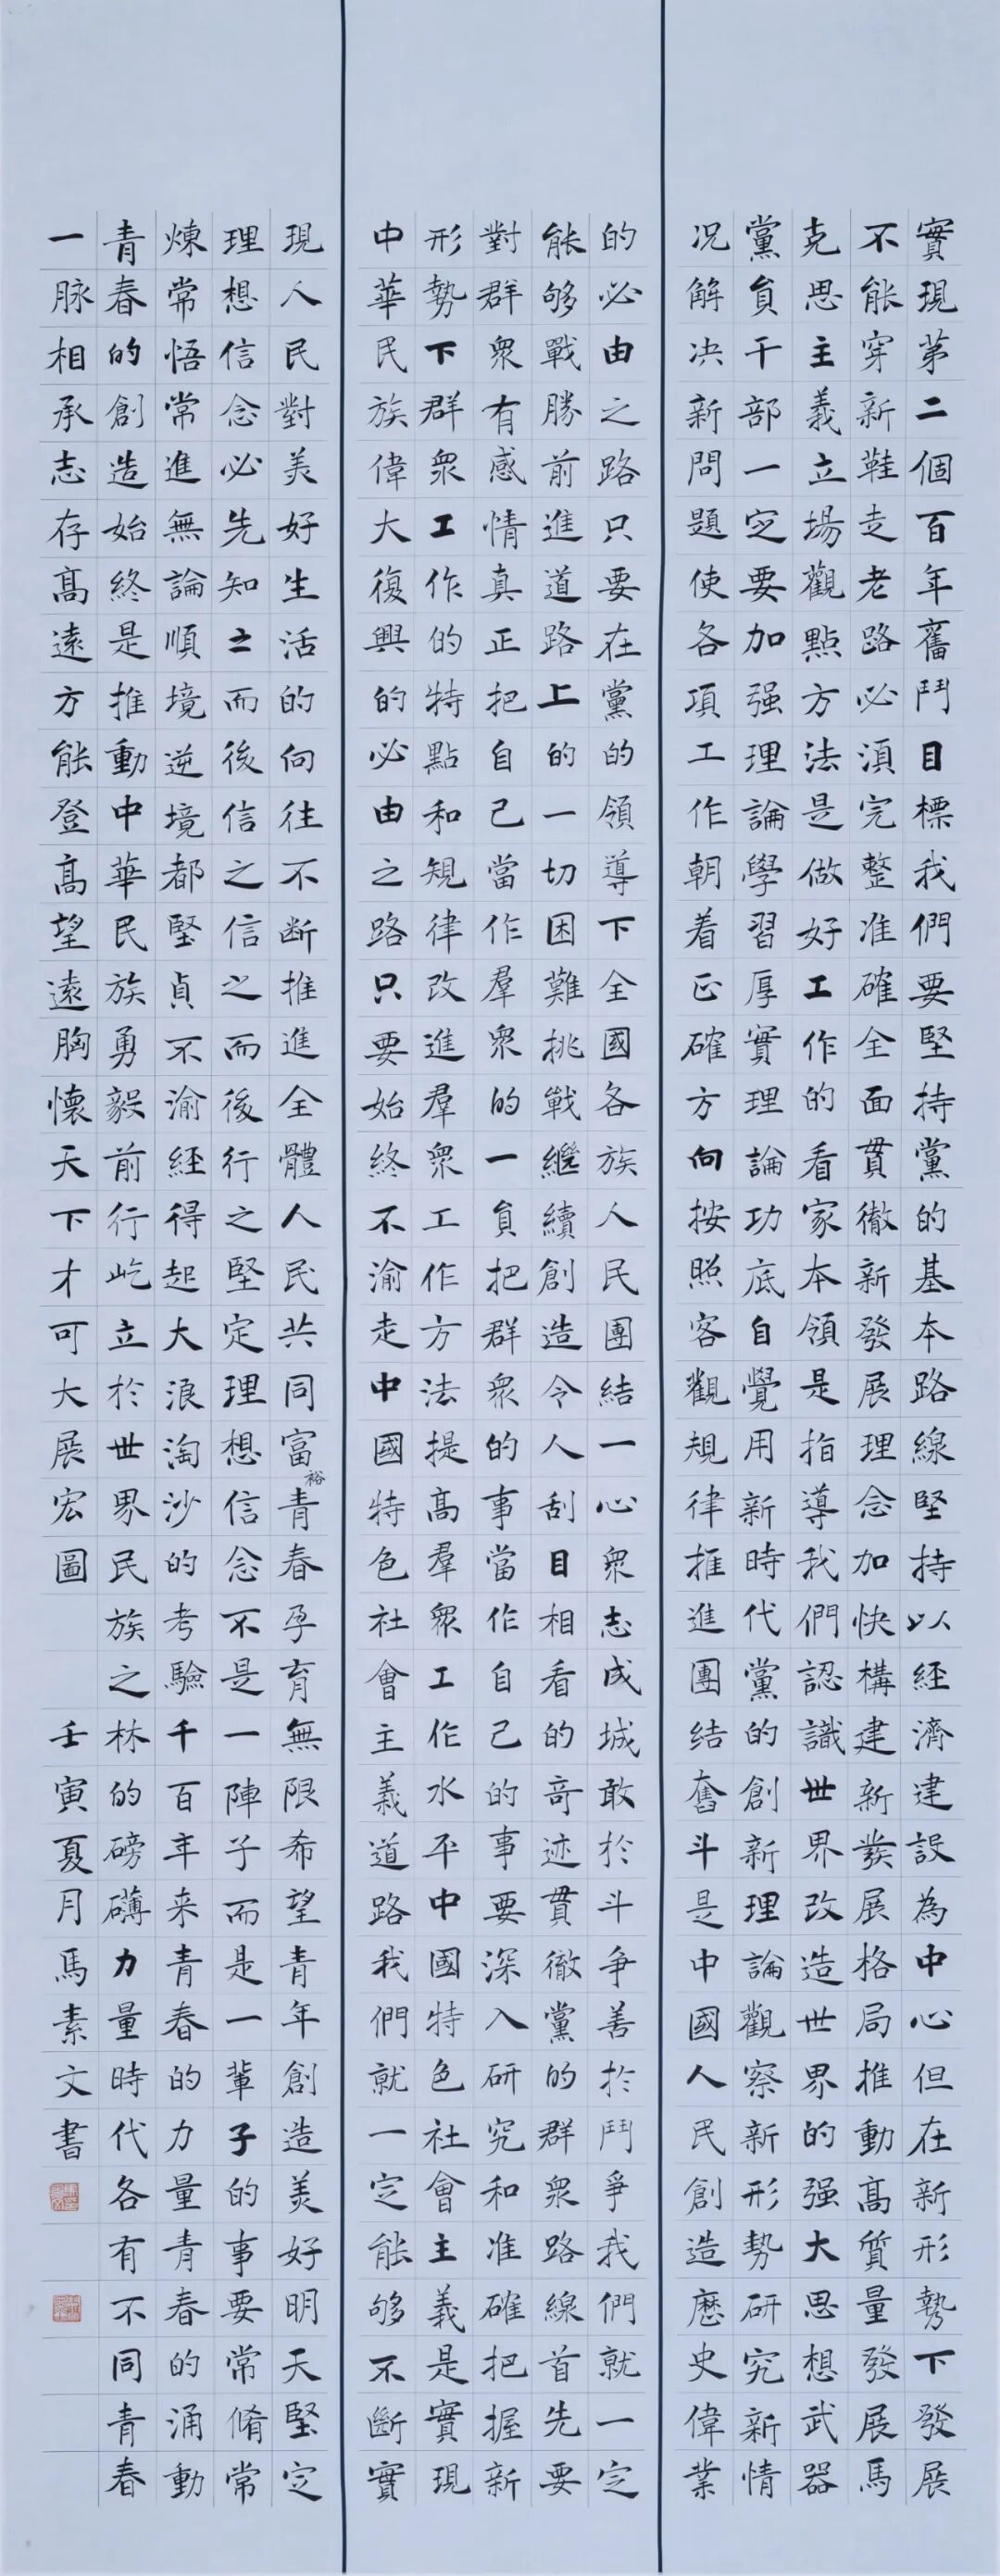 實現第二個百年奮鬥目標我們要堅持黨的基本路線堅持以経濟建設為中心但在新形勢下發展
不能穿新鞋走老路必湏完整准確全面貫徹新發展理念加快構建新發展格局推動高質量發展馬
克思主義立場觀點方法是做好工作的看家本領是指導我們認識世界改造世界的强大思想武器
黨員干部一定要加强理論學習厚實理論功底自覺用新時代黨的創新理論觀察新形勢研究新情
况解决新問題使各項工作朝着正確方向按照客觀規律推進團结奮斗是中國人民創造歷史偉業
的必由之路只要在黨的領導下全國各族人民團結一心衆志成城敢於斗争善於鬥爭我們就一定
能够戰勝前進道路上的一切困難挑戰繼續創造令人刮目相看的奇迹貫徹黨的群衆路線首先要
對群衆有感情真正把自己當作羣衆的一員把群衆的事當作自己的事要深入研究和准確把握新
形勢下群衆工作的特點和規律改進羣衆工作方法提高羣衆工作水平中國特色社會主義是實現
中華民族偉大復興的必由之路只要始終不渝走中國特色社會主義道路我們就一定能够不斷實
現人民對美好生活的向往不断推進全體人民共同富裕青春孕育無限希望青年創造美好明天堅定
理想信念必先知之而後信之信之而後行之堅定理想信念不是一陣子而是一輩子的事要常脩常
煉常悟常進無論順境逆境都堅貞不渝経得起大浪淘沙的考驗千百年来青春的力量青春的涌動
青春的創造始終是推動中華民族勇毅前行屹立於世界民族之林的磅礴力量時代各有不同青春
一脉相承志存高遠方能登高望遠胸懷天下才可大展宏圖 壬寅夏月馬素文書